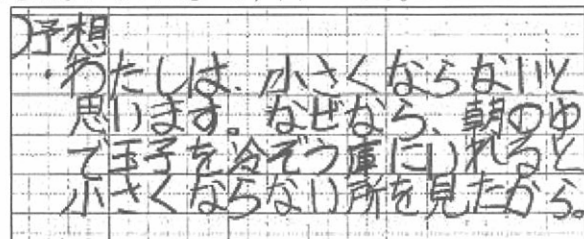 )予想
・わたしは、小さくならないと
思います。なぜなら、朝のゆ
で玉子を冷ぞう庫にいれると
小さくならない所を見たから。